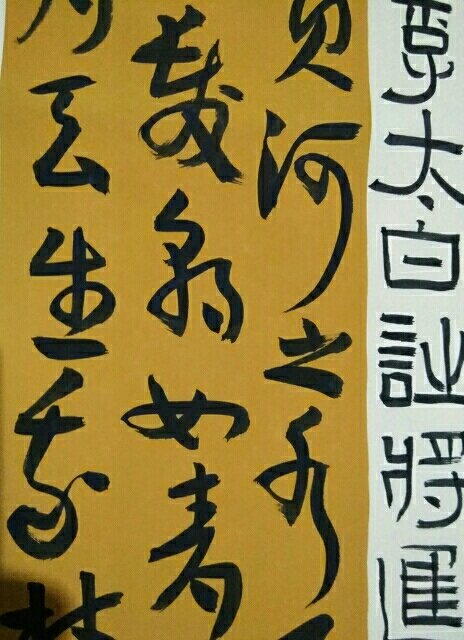 李太白詩將進
黄河之水
髮朝如青
月天生我材